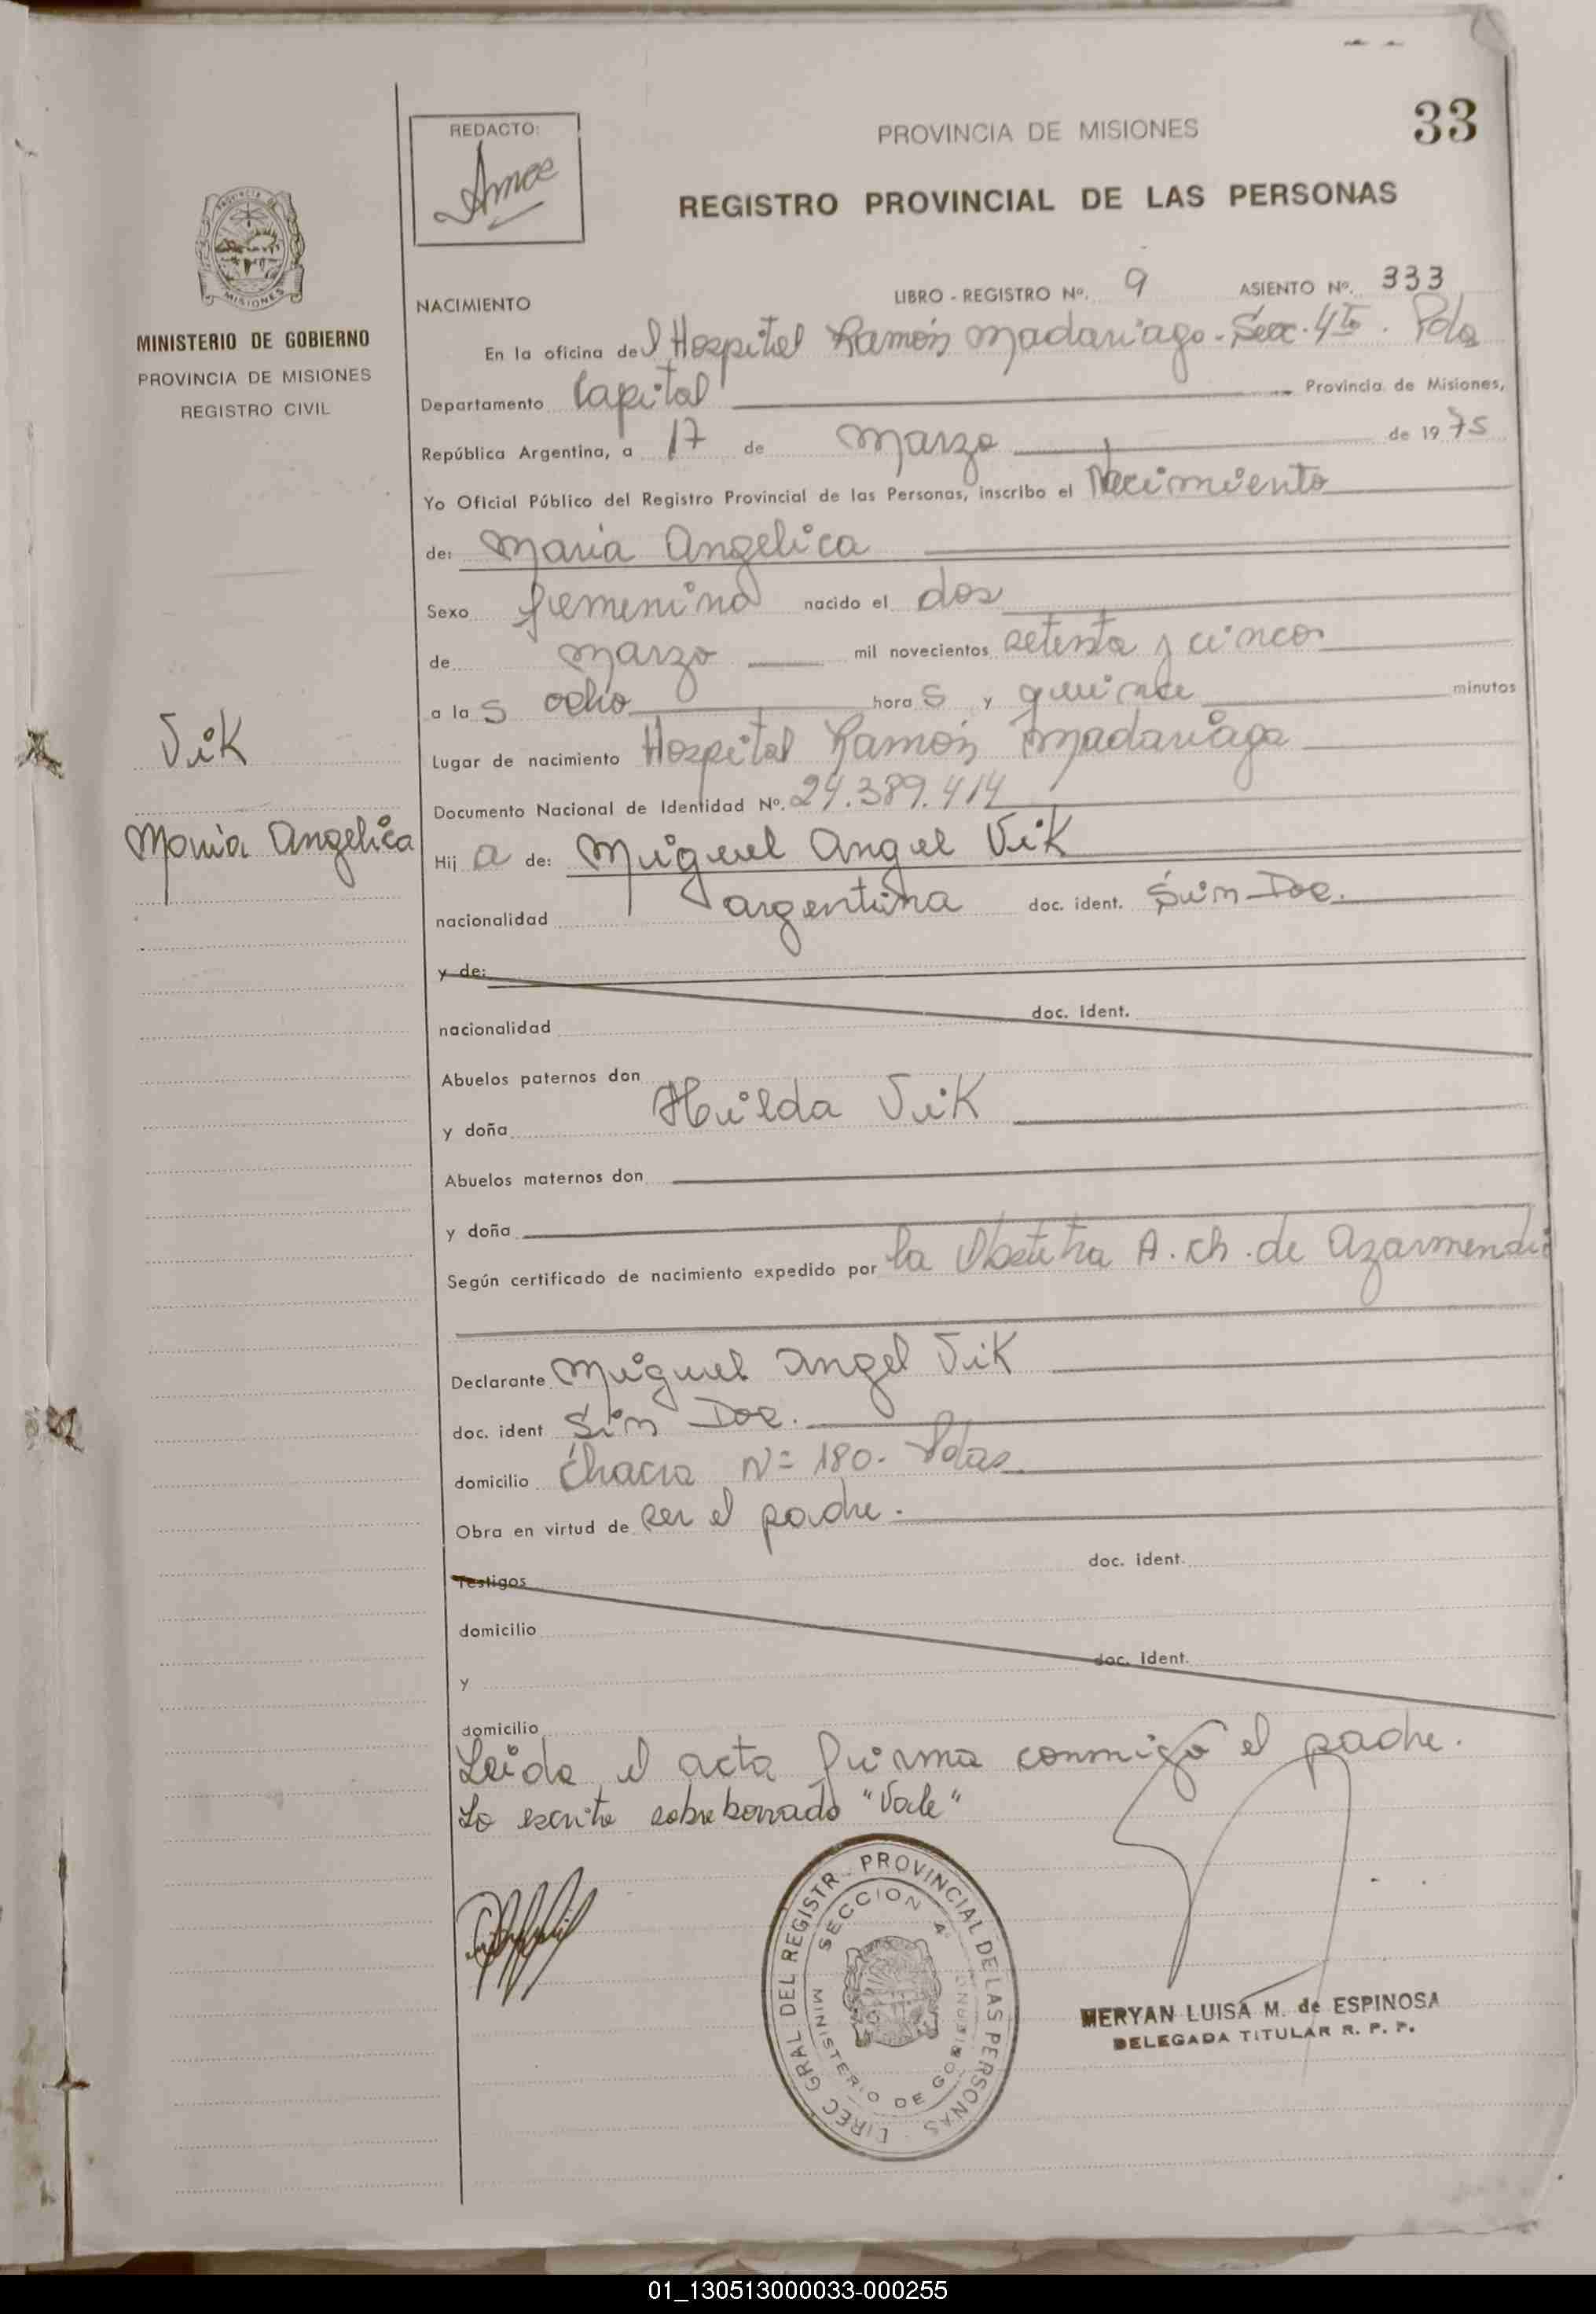 33
REDACTO:
PROVINCIA DE MISIONES
REGISTRO PROVINCIAL DE LAS PERSONAS
MISIONES
MINISTERIO DE GOBIERNO
PROVINCIA DE MISIONES
REGISTRO CIVIL
NACIMIENTO
LIBRO - REGISTRO Nº. 9 ASIENTO Nº. 333
En la oficina del Hospital Ramón Madariaga - Sec. 4ta. Pdas
Departamento Capital Provincia de Misiones,
República Argentina, a 17 de Marzo de 1975
Yo Oficial Público del Registro Provincial de las Personas, inscribo el Nacimiento
de: Maria Angelica
Sexo femenino nacido el dos
de marzo mil novecientos setenta y cinco
a las ocho horas y quince minutos
Vik
Lugar de nacimiento Hospital Ramón Madariaga
Documento Nacional de Identidad Nº. 24.389.414
Maria Angelica
Hija de: Miguel Angel Vik
nacionalidad argentina doc. ident. Sin Doc.
y de:
nacionalidad doc. ident.
Abuelos paternos don
y doña Hilda Vik
Abuelos maternos don
y doña
Según certificado de nacimiento expedido por la Obstetra A. Ch. de Azarmendi
Declarante Miguel Angel Vik
doc. ident Sin Doc.
domicilio Chacra Nº 180. Pdas.
Obra en virtud de ser el padre.
Testigos doc. ident.
domicilio
y doc. ident.
domicilio
Leida el acta firma conmigo el padre.
Lo escrito sobre borrado "Vale"
DIREC GRAL DEL REGISTR. PROVINCIAL DE LAS PERSONAS
SECCION 4ª
MINISTERIO DE GOBIERNO
MERYAN LUISA M. de ESPINOSA
DELEGADA TITULAR R. P. P.
01_130513000033-000255